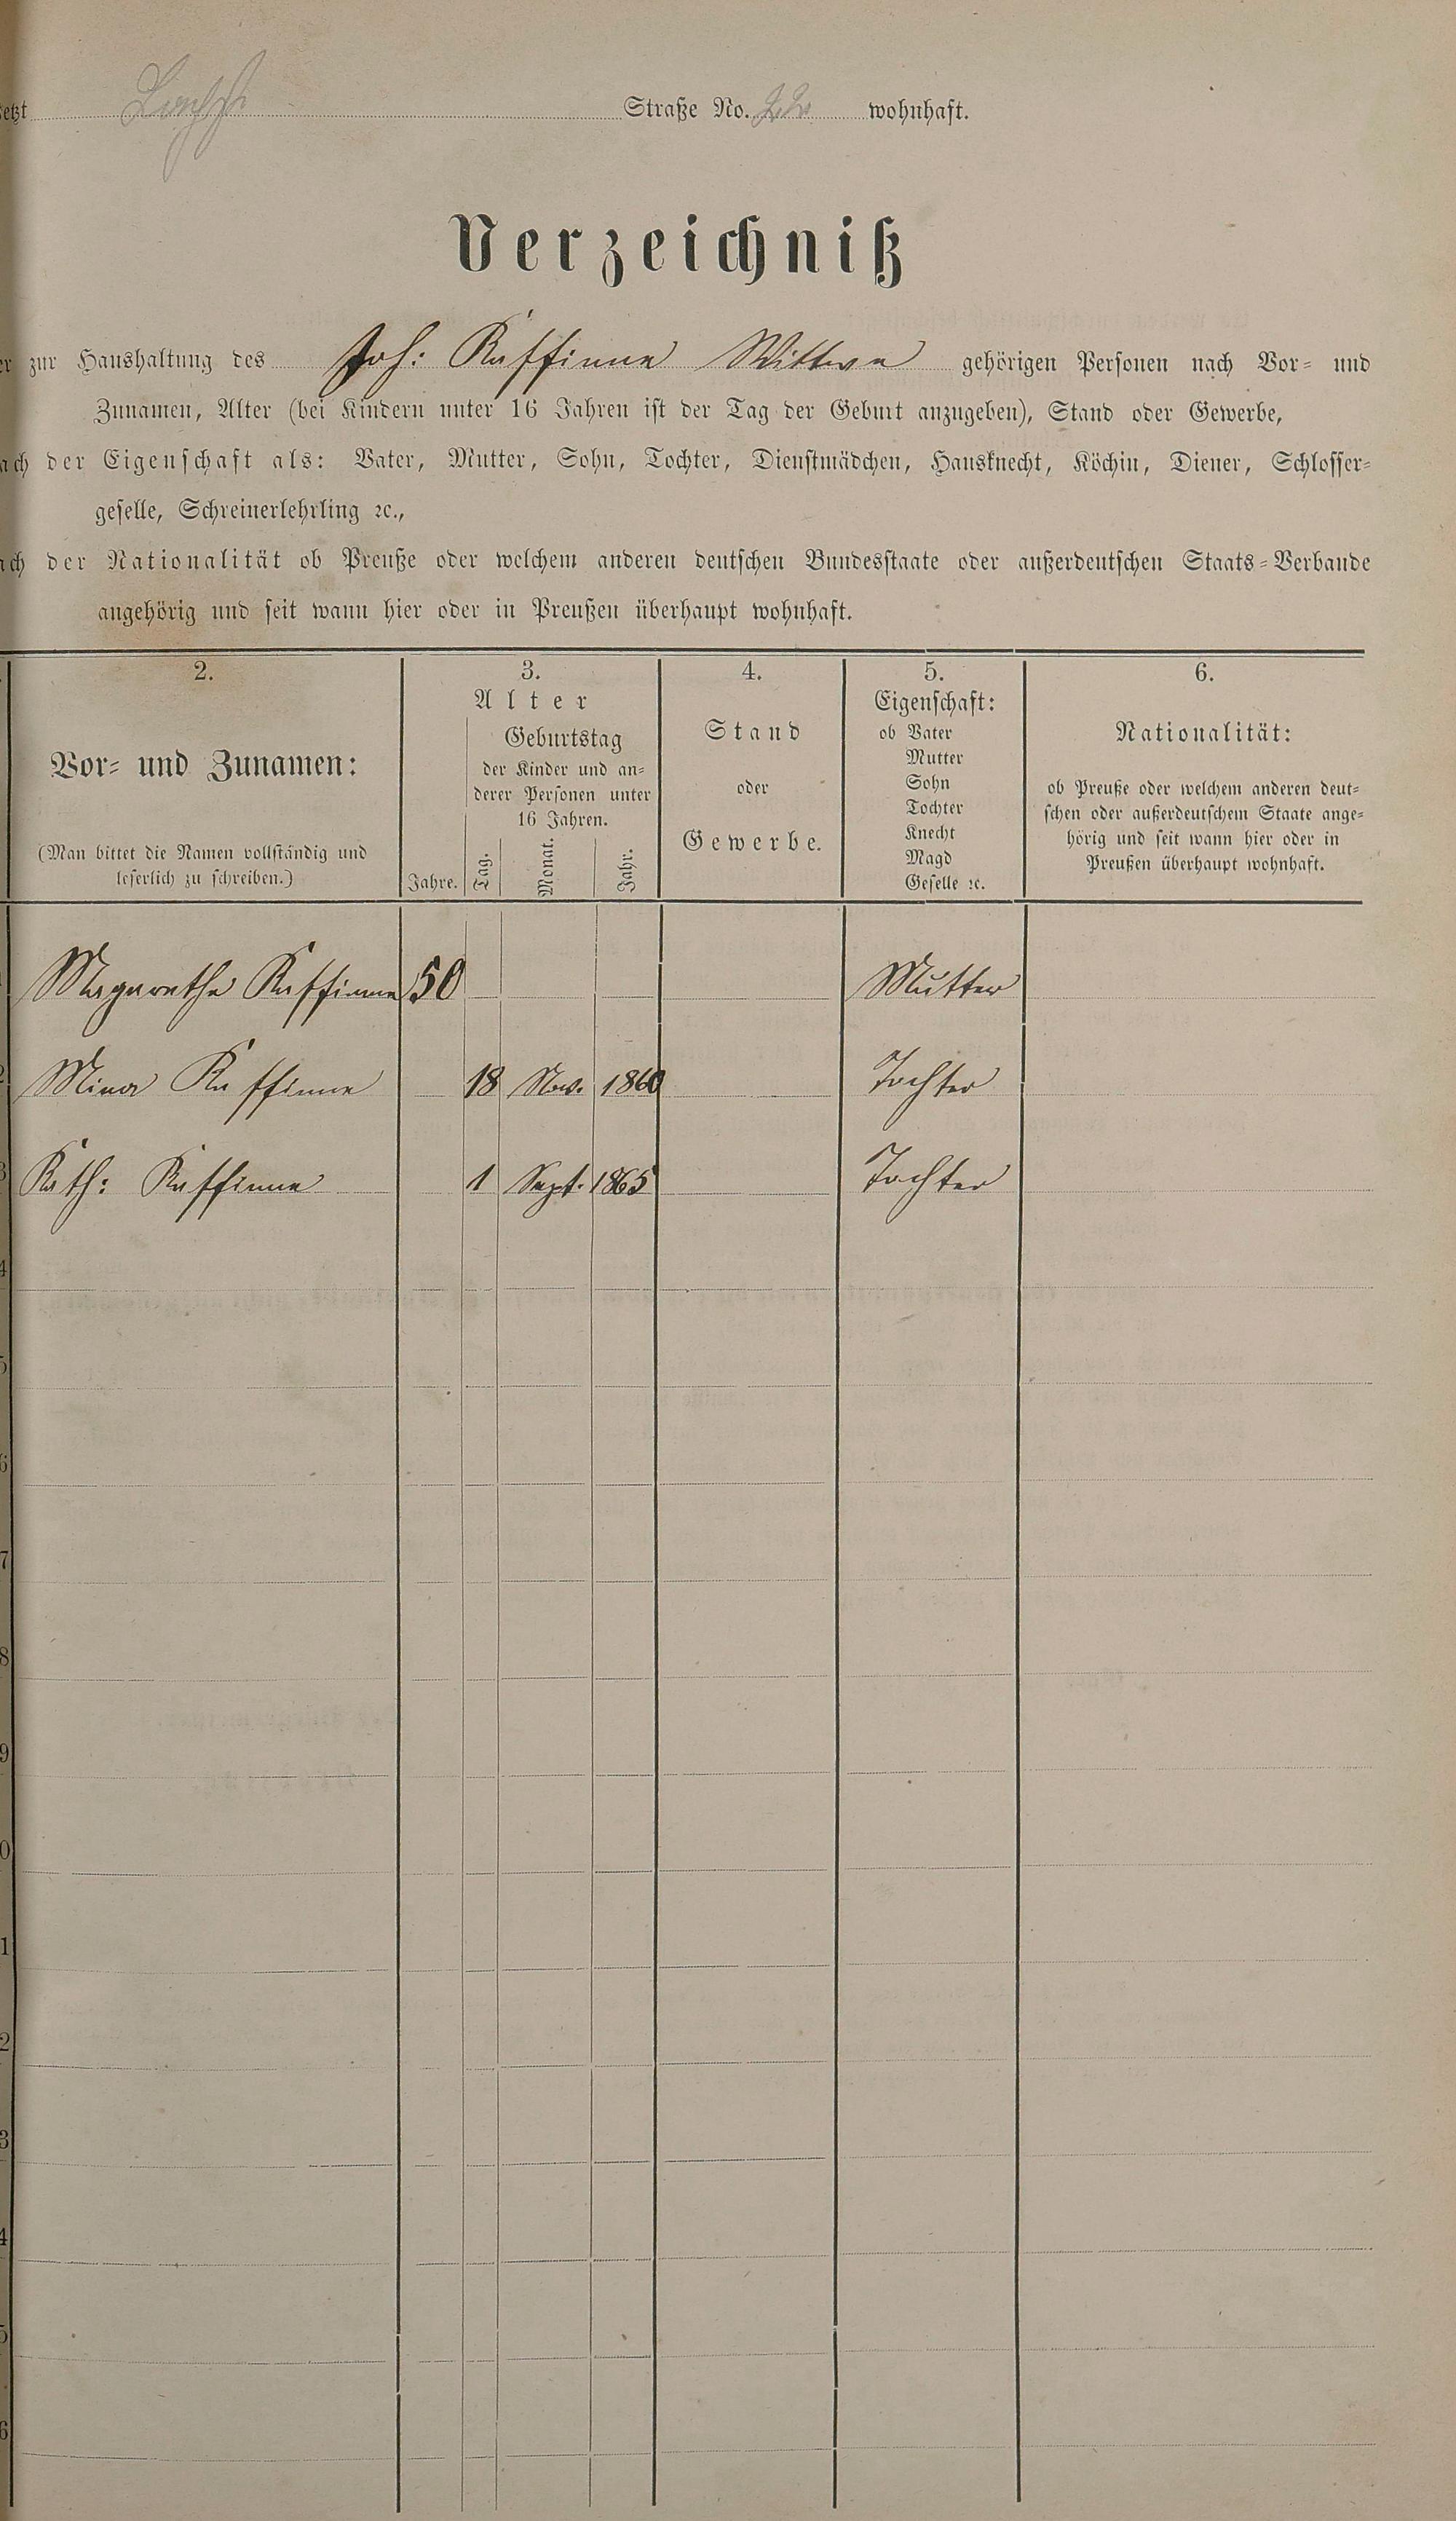 etzt Straße No. wohnhaft.
Verzeichniß
er zur Haushaltung des Joh: Kaffinne Wittwe gehörigen Personen nach Vor- und
Zunamen, Alter (bei Kindern unter 16 Jahren ist der Tag der Geburt anzugeben), Stand oder Gewerbe,
ach der Eigenschaft als: Vater, Mutter, Sohn, Tochter, Dienstmädchen, Hausknecht, Köchin, Diener, Schlosser-
geselle, Schreinerlehrling ꝛc.,
ach der Nationalität ob Preuße oder welchem anderen deutschen Bundesstaate oder außerdeutschen Staats-Verbande
angehörig und seit wann hier oder in Preußen überhaupt wohnhaft.
2.
Vor- und Zunamen:
(Man bittet die Namen vollständig und
leserlich zu schreiben.)
3.
Alter
Jahre.
Geburtstag
der Kinder und an-
derer Personen unter
16 Jahren.
Tag.
Monat.
Jahr.
4.
Stand
oder
Gewerbe.
5.
Eigenschaft:
ob Vater
Mutter
Sohn
Tochter
Knecht
Magd
Geselle ꝛc.
6.
Nationalität:
ob Preuße oder welchem anderen deut-
schen oder außerdeutschem Staate ange-
hörig und seit wann hier oder in
Preußen überhaupt wohnhaft.
Magarethe Kaffinne 50 Mutter
2 Mina Kaffinne 18 Nov. 1860 Tochter
3 Kath: Kaffinne 1 Sept. 1865 Tochter
4
5
6
7
8
9
0
1
2
3
4
5
6